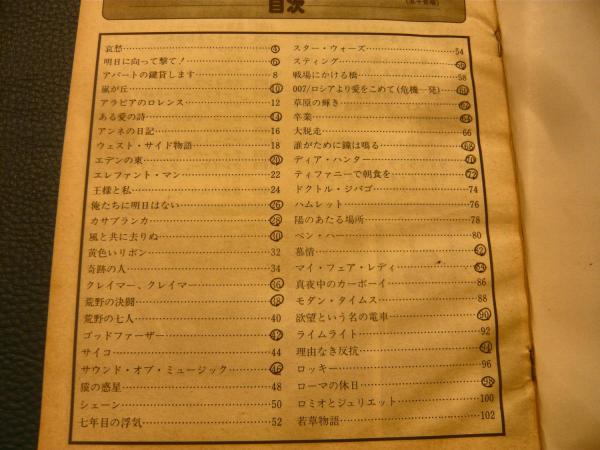 目次
哀愁……④
明日に向って撃て!……⑥
アパートの鍵貸します……8
嵐が丘……⑩
アラビアのロレンス……12
ある愛の詩……⑭
アンネの日記……16
ウェスト・サイド物語……18
エデンの東……⑳
エレファント・マン……22
王様と私……24
俺たちに明日はない……㉖
カサブランカ……㉘
風と共に去りぬ……㉚
黄色いリボン……32
奇跡の人……34
クレイマー、クレイマー……㊱
荒野の決闘……㊳
荒野の七人……40
ゴッドファーザー……㊷
サイコ……44
サウンド・オブ・ミュージック……㊻
猿の惑星……48
シェーン……50
七年目の浮気……52
スター・ウォーズ……54
スティング……56
戦場にかける橋……58
007/ロシアより愛をこめて(危機一発)……60
草原の輝き……62
卒業……64
大脱走……66
誰がために鐘は鳴る……68
ディア・ハンター……70
ティファニーで朝食を……72
ドクトル・ジバゴ……74
ハムレット……76
陽のあたる場所……78
ベン・ハー……80
慕情……82
マイ・フェア・レディ……84
真夜中のカーボーイ……86
モダン・タイムス……88
欲望という名の電車……90
ライムライト……92
理由なき反抗……94
ロッキー……96
ローマの休日……98
ロミオとジュリエット……100
若草物語……102